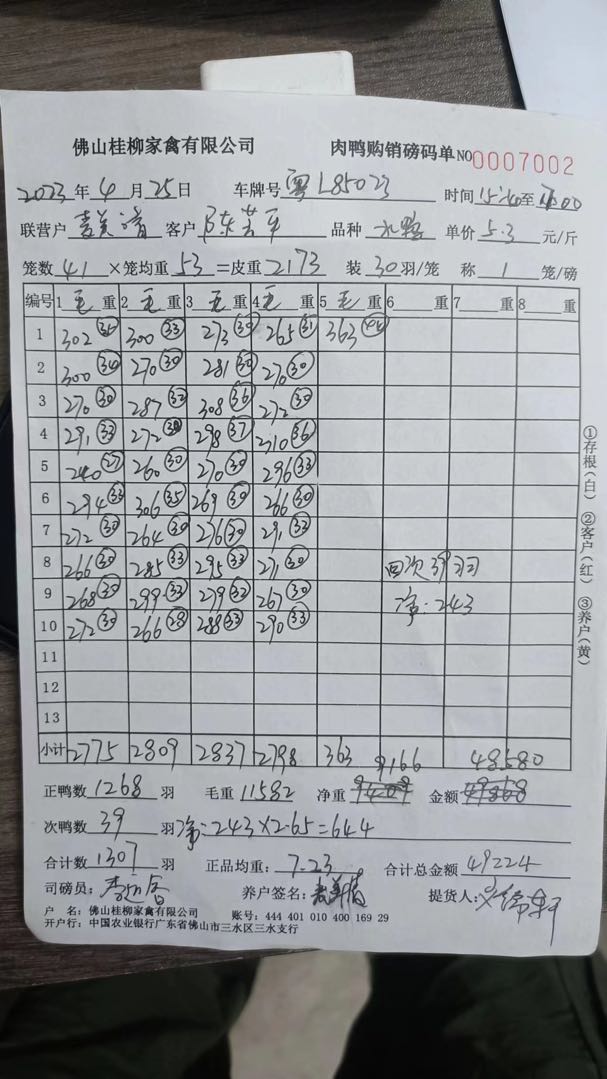 佛山桂柳家禽有限公司 肉鸭购销磅码单 NO 0007002
2023 年 4 月 25 日 车牌号 粤L85023 时间 15:40 至
联营户 客户 陈芸平 品种 水鸭 单价 5.3 元/斤
笼数 41 ×笼均重 53 =皮重 2173 装 30 羽/笼 称 1 笼/磅
编号 1 毛 重 2 毛 重 3 毛 重 4 毛 重 5 毛 重 6 重 7 重 8 重
1 302 35 300 33 273 30 265 31 363
2 300 34 270 30 281 30 270 30
3 270 30 287 32 308 36 272 30
4 291 33 272 30 298 37 310 36
5 240 27 260 30 270 30 296 33
6 294 33 306 35 269 30 266 30
7 272 30 264 30 276 30 291 33
8 266 30 285 33 295 33 271 30 回次39羽
9 268 30 299 33 279 32 267 30 净:243
10 272 30 266 28 288 33 290 33
11
12
13
小计 2775 2809 2837 2798 363 9166 48580
正鸭数 1268 羽 毛重 11582 净重 9409 金额 49868
次鸭数 39 羽 净:243×2.65=644
合计数 1307 羽 正品均重: 7.23 合计总金额 49224
司磅员: 养户签名: 提货人:
户 名: 佛山桂柳家禽有限公司 账号: 444 401 010 400 169 29
开户行: 中国农业银行广东省佛山市三水区三水支行
①存根(白) ②客户(红) ③养户(黄)